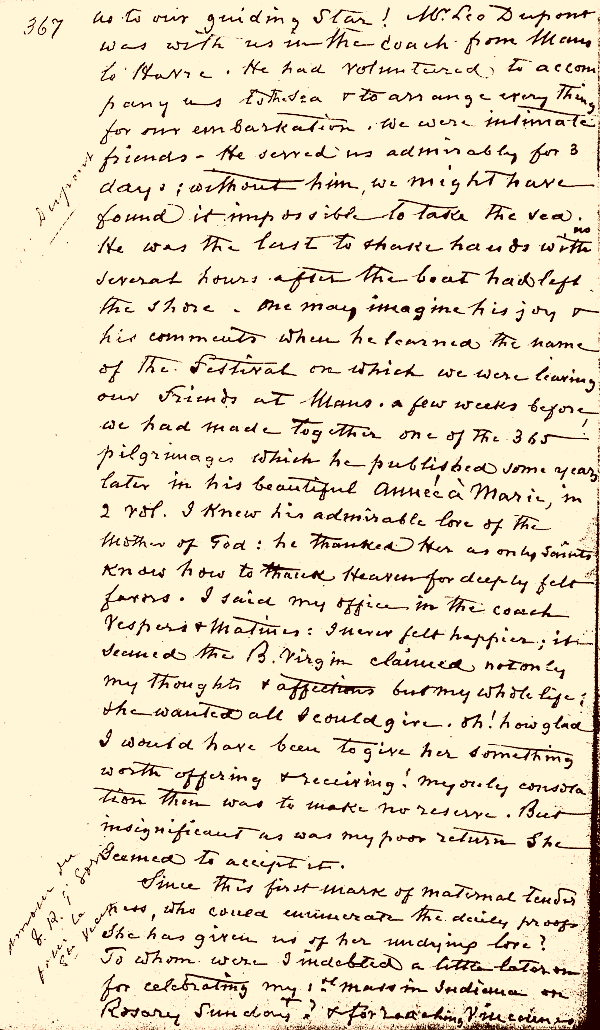 367
as to our guiding Star! Mr. Leo Dupont
was with us in the coach from Mans
to Havre. He had voluntered to accom
pany us to the sea & to arrange every thing
for our embarkation. We were intimate
friends - He served us admirably for 3
days; without him, we might have
found it impossible to take the sea.
He was the last to shake hands with us
several hours after the boat had left
the shore. One may imagine his joy &
his comments when he learned the name
of the Festival on which we were leaving
our Friends at Mans. a few weeks before,
we had made together one of the 365
pilgrimages which he published some years
later in his beautiful Année à Marie, in
2 vol. I knew his admirable love of the
Mother of God: he thanked Her as only Saints
know how to thank Heaven for deeply felt
favors. I said my office in the coach
Vespers & Matines: I never felt happier; it
seemed the B. Virgin claimed not only
my thoughts & affections but my whole life;
she wanted all I could give. oh! how glad
I would have been to give her something
worth offering & receiving! My only consola
tion then was to make no reserve. But
insignificant as was my poor return She
seemed to accept it.
Since this first mark of maternal tender
ness, who could enumerate the daily proofs
She has given us of her undying love?
To whom were I indebted a little later on
for celebrating my 1st mass in Indiana on
Rosary Sunday? & for reaching Vincennes
Dupont
Amour du
T. R. P. Sorin
pour la
Ste Vierge